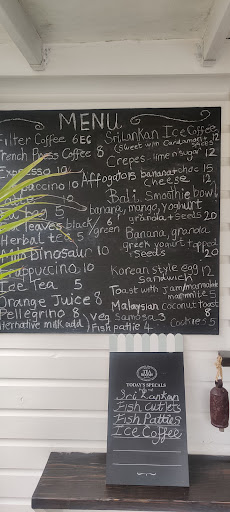 MENU
Filter Coffee 6 EC
French Press Coffee 8
Espresso
Cappuccino 10
Tea Bag 5
leaves black 6
Herbal tea 5 green
Milo Dinosaur 10
Frappuccino 10
Ice Tea 5
Orange Juice 8
Pellegrino 8
Alternative milk add
Sri Lankan Ice Coffee
(Sweet with Cardamom) 12
Crepes - lime n sugar 12
banana n choc 15
Affogatos
Cheese 12
Bali Smoothie bowl
banana, mango, yoghurt
granola + seeds 20
Banana, granola
greek yogurt topped
seeds 12
Korean style egg
Sandwich 12
Toast with Jam/marmalade
marmite 5
Malaysian coconut toast
8
Veg Samosa 3
Cookies 5
Fish pattie 4
TODAY'S SPECIALS
Sri Lankan
Fish Cutlets
Fish Patties
ICE Coffee